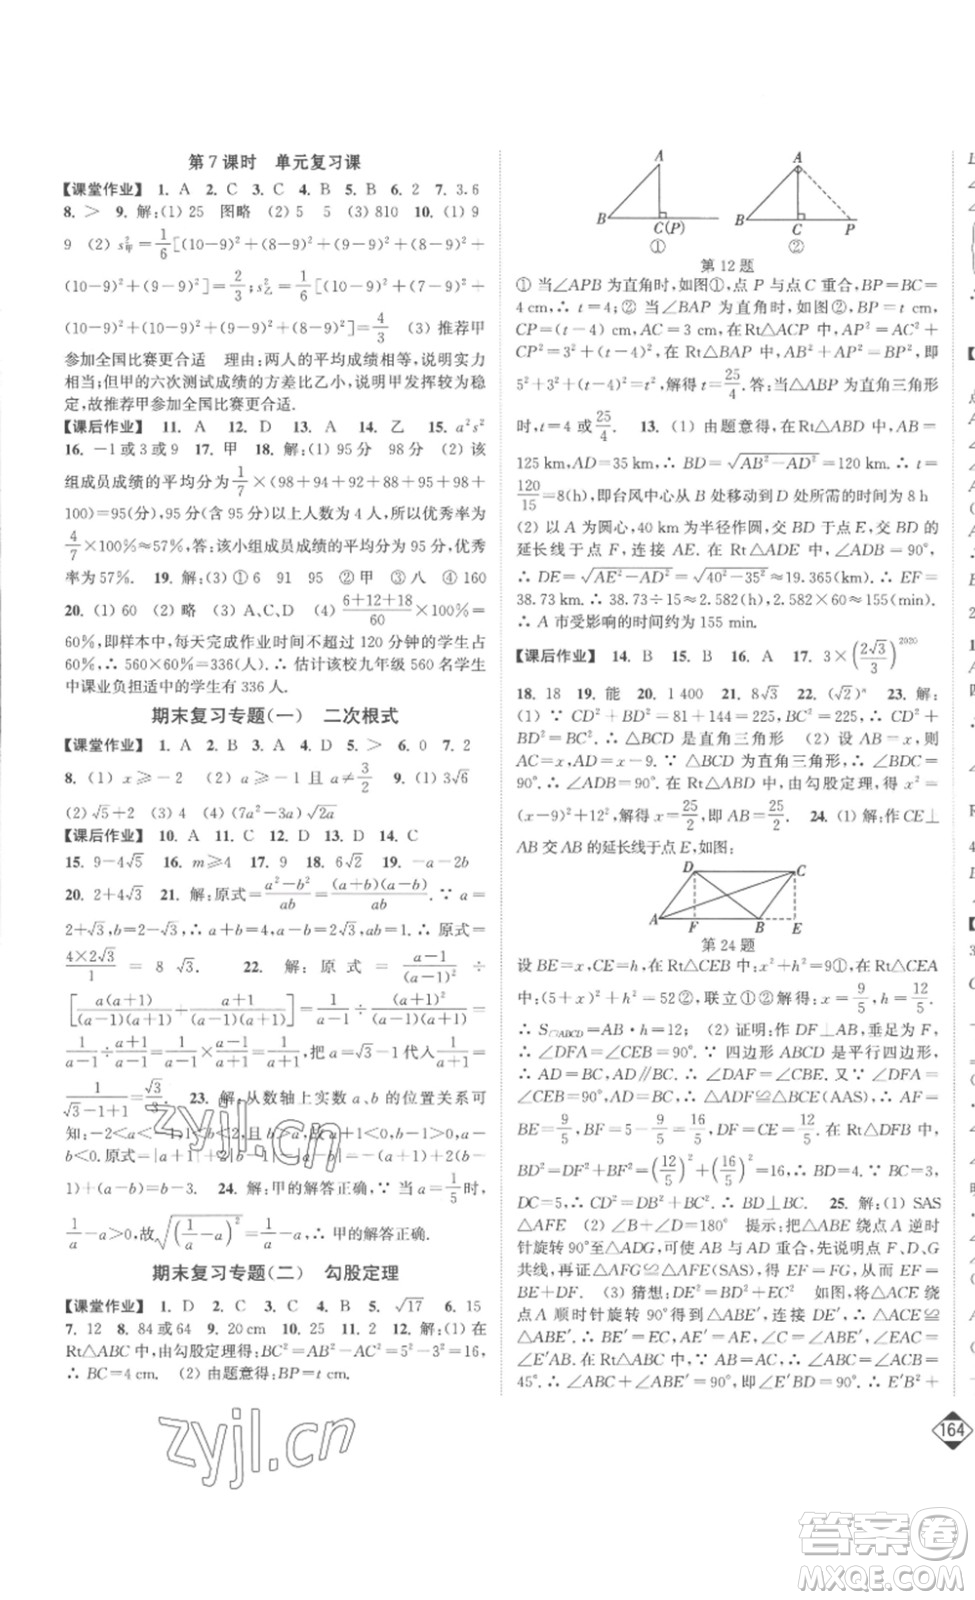 第7课时　单元复习课
【课堂作业】 1. A 2. C 3. C 4. B 5. B 6. 2 7. 3.6
8. > 9. 解:(1) 25　图略 (2) 5　5 (3) 810 10. (1) 9
9 (2) s²甲=1/6[(10-9)²+(8-9)²+(9-9)²+(8-9)²+
(10-9)²+(9-9)²]=2/3;s²乙=1/6[(10-9)²+(7-9)²+
(10-9)²+(10-9)²+(9-9)²+(8-9)²]=4/3 (3) 推荐甲
参加全国比赛更合适　理由:两人的平均成绩相等,说明实力
相当;但甲的六次测试成绩的方差比乙小,说明甲发挥较为稳
定,故推荐甲参加全国比赛更合适.
【课后作业】 11. A 12. D 13. A 14. 乙 15. a²s²
16. -1或3或9 17. 甲 18. 解:(1) 95分　98分 (2) 该
组成员成绩的平均分为1/7×(98+94+92+88+95+98+
100)=95(分),95分(含95分)以上人数为4人,所以优秀率为
4/7×100%≈57%,答:该小组成员成绩的平均分为95分,优秀
率为57%. 19. 解:(3) ① 6　91　95 ② 甲 ③ 八 ④ 160
20. (1) 60 (2) 略 (3) A、C、D (4) (6+12+18)/60×100%=
60%,即样本中,每天完成作业时间不超过120分钟的学生占
60%,∴ 560×60%=336(人). ∴ 估计该校九年级560名学生
中课业负担适中的学生有336人.
期末复习专题(一)　二次根式
【课堂作业】 1. A 2. B 3. A 4. D 5. > 6. 0 7. 2
8. (1) x≥-2 (2) a≥-1且a≠3/2 9. (1) 3√6
(2) √5+2 (3) 4 (4) (7a²-3a)√2a
【课后作业】 10. A 11. C 12. D 13. D 14. C
15. 9-4√5 16. m≥4 17. 9 18. 6√2 19. -a-2b
20. 2+4√3 21. 解:原式=(a²-b²)/ab=(a+b)(a-b)/ab. ∵ a=
2+√3,b=2-√3,∴ a+b=4,a-b=2√3,ab=1. ∴ 原式=
4×2√3/1=8√3. 22. 解:原式=(a-1)/(a-1)²÷
[a(a+1)/(a-1)(a+1)-(a+1)/(a-1)(a+1)]=1/(a-1)÷(a²-1)/(a-1)(a+1)=
1/(a-1)÷(a+1)/(a-1)=1/(a-1)·(a-1)/(a+1)=1/(a+1),把a=√3-1代入1/(a+1)=
1/(√3-1+1)=√3/3. 23. 解:从数轴上实数a、b的位置关系可
知:-2<a<-1,1<b<2,且b>a,故a+1<0,b-1>0,a-
b<0.原式=|a+1|+2|b-1|-|a-b|=-(a+1)+2(b-
1)+(a-b)=b-3. 24. 解:甲的解答正确,∵ 当a=1/5时,
1/a-a>0,故√(1/a-a)²=1/a-a,∴ 甲的解答正确.
期末复习专题(二)　勾股定理
【课堂作业】 1. D 2. C 3. B 4. B 5. √17 6. 15
7. 12 8. 84或64 9. 20 cm 10. 25 11. 2 12. 解:(1) 在
Rt△ABC中,由勾股定理得:BC²=AB²-AC²=5²-3²=16,
∴ BC=4 cm. (2) 由题意得:BP=t cm.
A
B
C(P)
①
A
B
C
P
②
第12题
① 当∠APB为直角时,如图①,点P与点C重合,BP=BC=
4 cm,∴ t=4;② 当∠BAP为直角时,如图②,BP=t cm,
CP=(t-4) cm,AC=3 cm,在Rt△ACP中,AP²=AC²+
CP²=3²+(t-4)²,在Rt△BAP中,AB²+AP²=BP²,即
5²+3²+(t-4)²=t²,解得t=25/4.答:当△ABP为直角三角形
时,t=4或25/4. 13. (1) 由题意得,在Rt△ABD中,AB=
125 km,AD=35 km,∴ BD=√AB²-AD²=120 km. ∴ t=
120/15=8(h),即台风中心从B处移动到D处所需的时间为8 h
(2) 以A为圆心,40 km为半径作圆,交BD于点E,交BD的
延长线于点F,连接AE. 在Rt△ADE中,∠ADB=90°,
∴ DE=√AE²-AD²=√40²-35²≈19.365(km). ∴ EF=
38.73 km. ∴ 38.73÷15=2.582(h),2.582×60≈155(min).
∴ A市受影响的时间约为155 min.
【课后作业】 14. B 15. B 16. A 17. 3×(2√3/3)²⁰²⁰
18. 18 19. 能 20. 1 400 21. 8√3 22. (√2)ⁿ 23. 解:
(1) ∵ CD²+BD²=81+144=225,BC²=225,∴ CD²+
BD²=BC². ∴ △BCD是直角三角形 (2) 设AB=x,则
AC=x,AD=x-9. ∵ △BCD为直角三角形,∴ ∠BDC=
90°. ∴ ∠ADB=90°. 在Rt△ABD中,由勾股定理得,x²=
(x-9)²+12²,解得x=25/2,即AB=25/2. 24. (1) 解:作CE⊥
AB交AB的延长线于点E,如图:
D
C
A
F
B
E
第24题
设BE=x,CE=h,在Rt△CEB中:x²+h²=9①,在Rt△CEA
中:(5+x)²+h²=52②,联立①②解得:x=9/5,h=12/5.
∴ S▱ABCD=AB·h=12; (2) 证明:作DF⊥AB,垂足为F,
∴ ∠DFA=∠CEB=90°. ∵ 四边形ABCD是平行四边形,
∴ AD=BC,AD∥BC. ∴ ∠DAF=∠CBE. 又∵ ∠DFA=
∠CEB=90°,AD=BC,∴ △ADF≌△BCE(AAS),∴ AF=
BE=9/5,BF=5-9/5=16/5,DF=CE=12/5. 在Rt△DFB中,
BD²=DF²+BF²=(12/5)²+(16/5)²=16,∴ BD=4. ∵ BC=3,
DC=5,∴ CD²=DB²+BC². ∴ BD⊥BC. 25. 解:(1) SAS
△AFE (2) ∠B+∠D=180° 提示:把△ABE绕点A逆时
针旋转90°至△ADG,可使AB与AD重合,先说明点F、D、G
共线,再证△AFG≌△AFE(SAS),得EF=FG,从而EF=
BE+DF. (3) 猜想:DE²=BD²+EC²,如图,将△AEC绕
点A顺时针旋转90°得到△ABE′,连接DE′,∴ △ACE≌
△ABE′. ∴ BE′=EC,AE′=AE,∠C=∠ABE′,∠EAC=
∠E′AB. 在Rt△ABC中,∵ AB=AC,∴ ∠ABC=∠ACB=
45°. ∴ ∠ABC+∠ABE′=90°,即∠E′BD=90°. ∴ E′B²+
164
zyjl.cn
zyjl.cn
答案卷
MXQE.COM